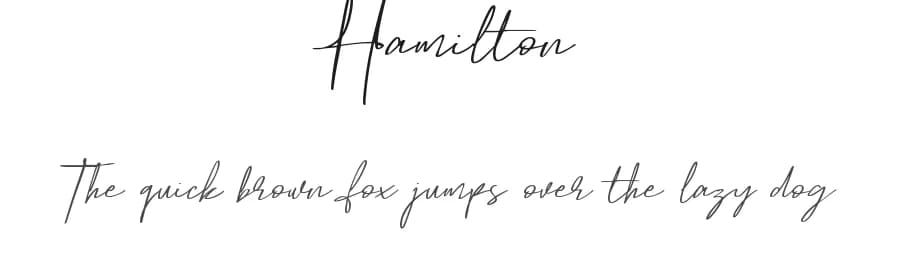 Hamilton
The quick brown fox jumps over the lazy dog